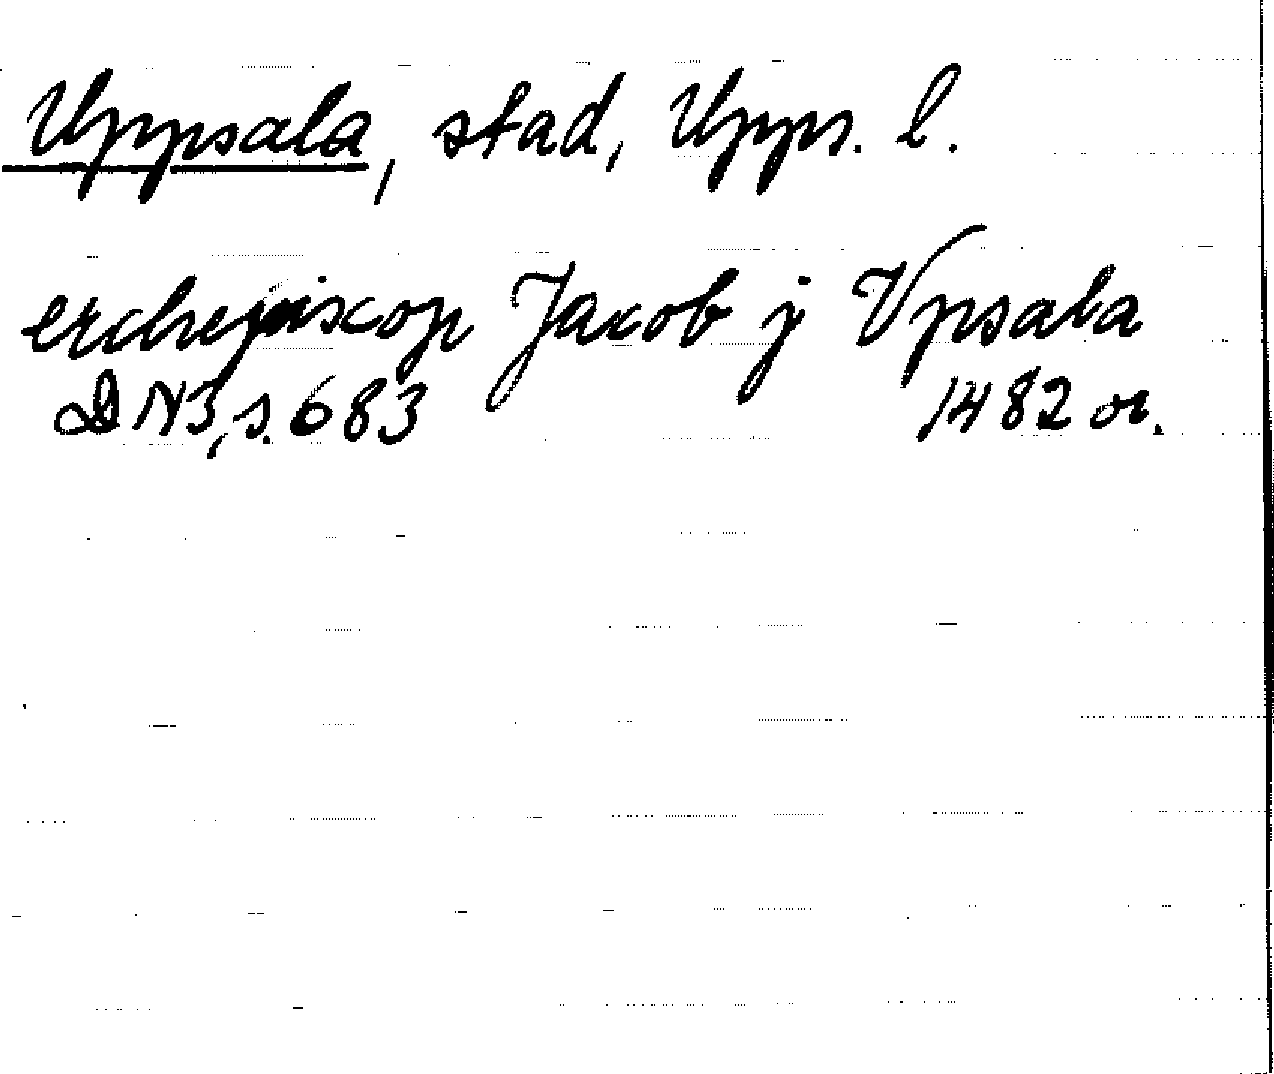 Uppsala, stad, Upps. l.
erchepiscop Jacob j Vpsala
DN3, s. 683 1482 or.